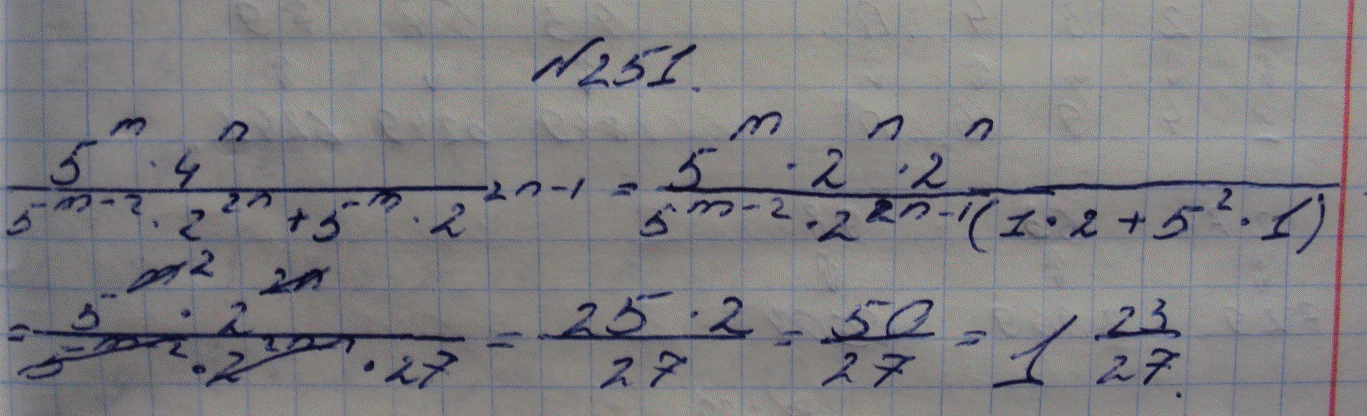 №251.
5^m · 4^n / (5^(m-2) · 2^(2n) + 5^m · 2^(2n-1)) = 5^m · 2^n · 2^n / (5^(m-2) · 2^(2n-1) (1·2 + 5^2 · 1))
= 5^(m 2) · 2^(2n) / (5^(m-2) · 2^(2n-1) · 27) = 25 · 2 / 27 = 50 / 27 = 1 23/27.